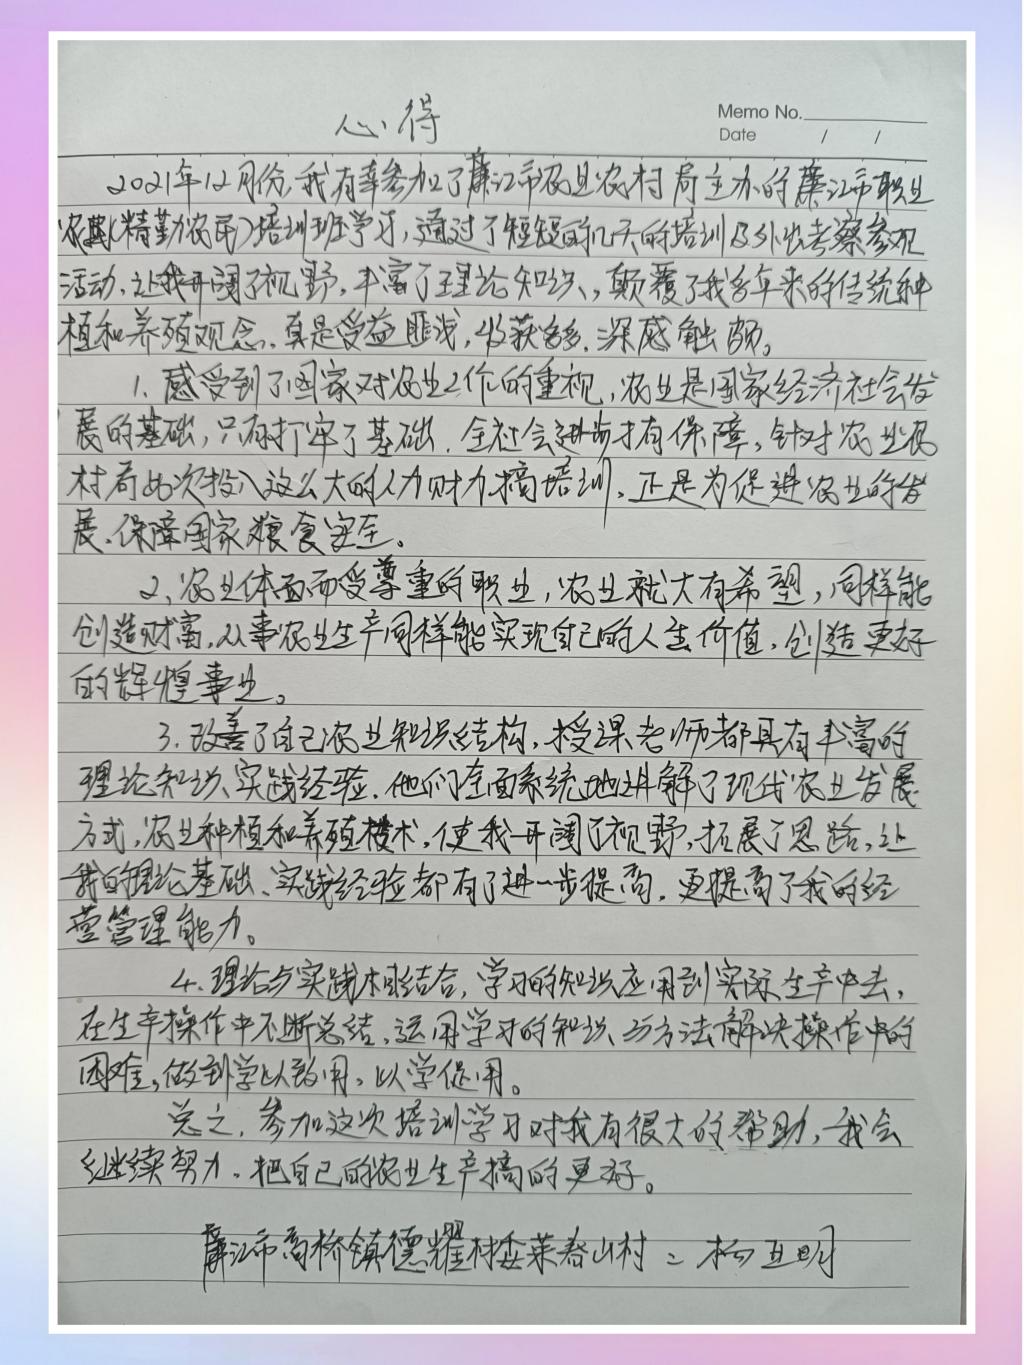 心得
Memo No.
Date / /
2021年12月份，我有幸参加了廉江市农业农村局主办的廉江市职业
农民(精勤农民)培训班学习，通过了短短的几天的培训及外出考察参观
活动，让我开阔了视野，丰富了理论知识，颠覆了我多年来的传统种
植和养殖观念，真是受益匪浅，收获多多，深感触颇。
1.感受到了国家对农业工作的重视，农业是国家经济社会发
展的基础，只有打牢了基础，全社会进步才有保障，针对农业农
村局如次投入这么大的人力财力搞培训，正是为促进农业的发
展、保障国家粮食安全。
2、农业体面而受尊重的职业，农业就大有希望，同样能
创造财富，从事农业生产同样能实现自己的人生价值，创造更好
的辉煌事业。
3.改善了自己农业知识结构，授课老师都具有丰富的
理论知识、实践经验，他们全面系统地讲解了现代农业发展
方式，农业种植和养殖技术，使我开阔了视野，拓展了思路，让
我的理论基础、实践经验都有了进一步提高，更提高了我的经
营管理能力。
4.理论与实践相结合，学习的知识应用到实际生产中去，
在生产操作中不断总结，运用学习的知识、与方法解决操作中的
困难，做到学以致用，以学促用。
总之，参加这次培训学习对我有很大的帮助，我会
继续努力，把自己的农业生产搞的更好。
廉江市高桥镇德耀村委莱春山村：杨亚明